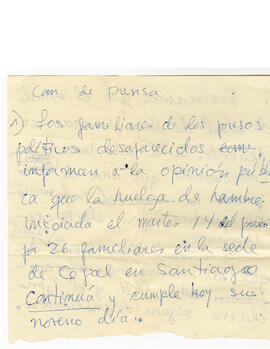 Con de prensa
1) Los familiares de los presos
políticos desaparecidos
informan a la opinión públi
ca que la huelga de hambre
iniciada el martes 14 del presen
por 26 familiares en la sede
de Cepal en Santiago
continúa y cumple hoy sus
noveno día.